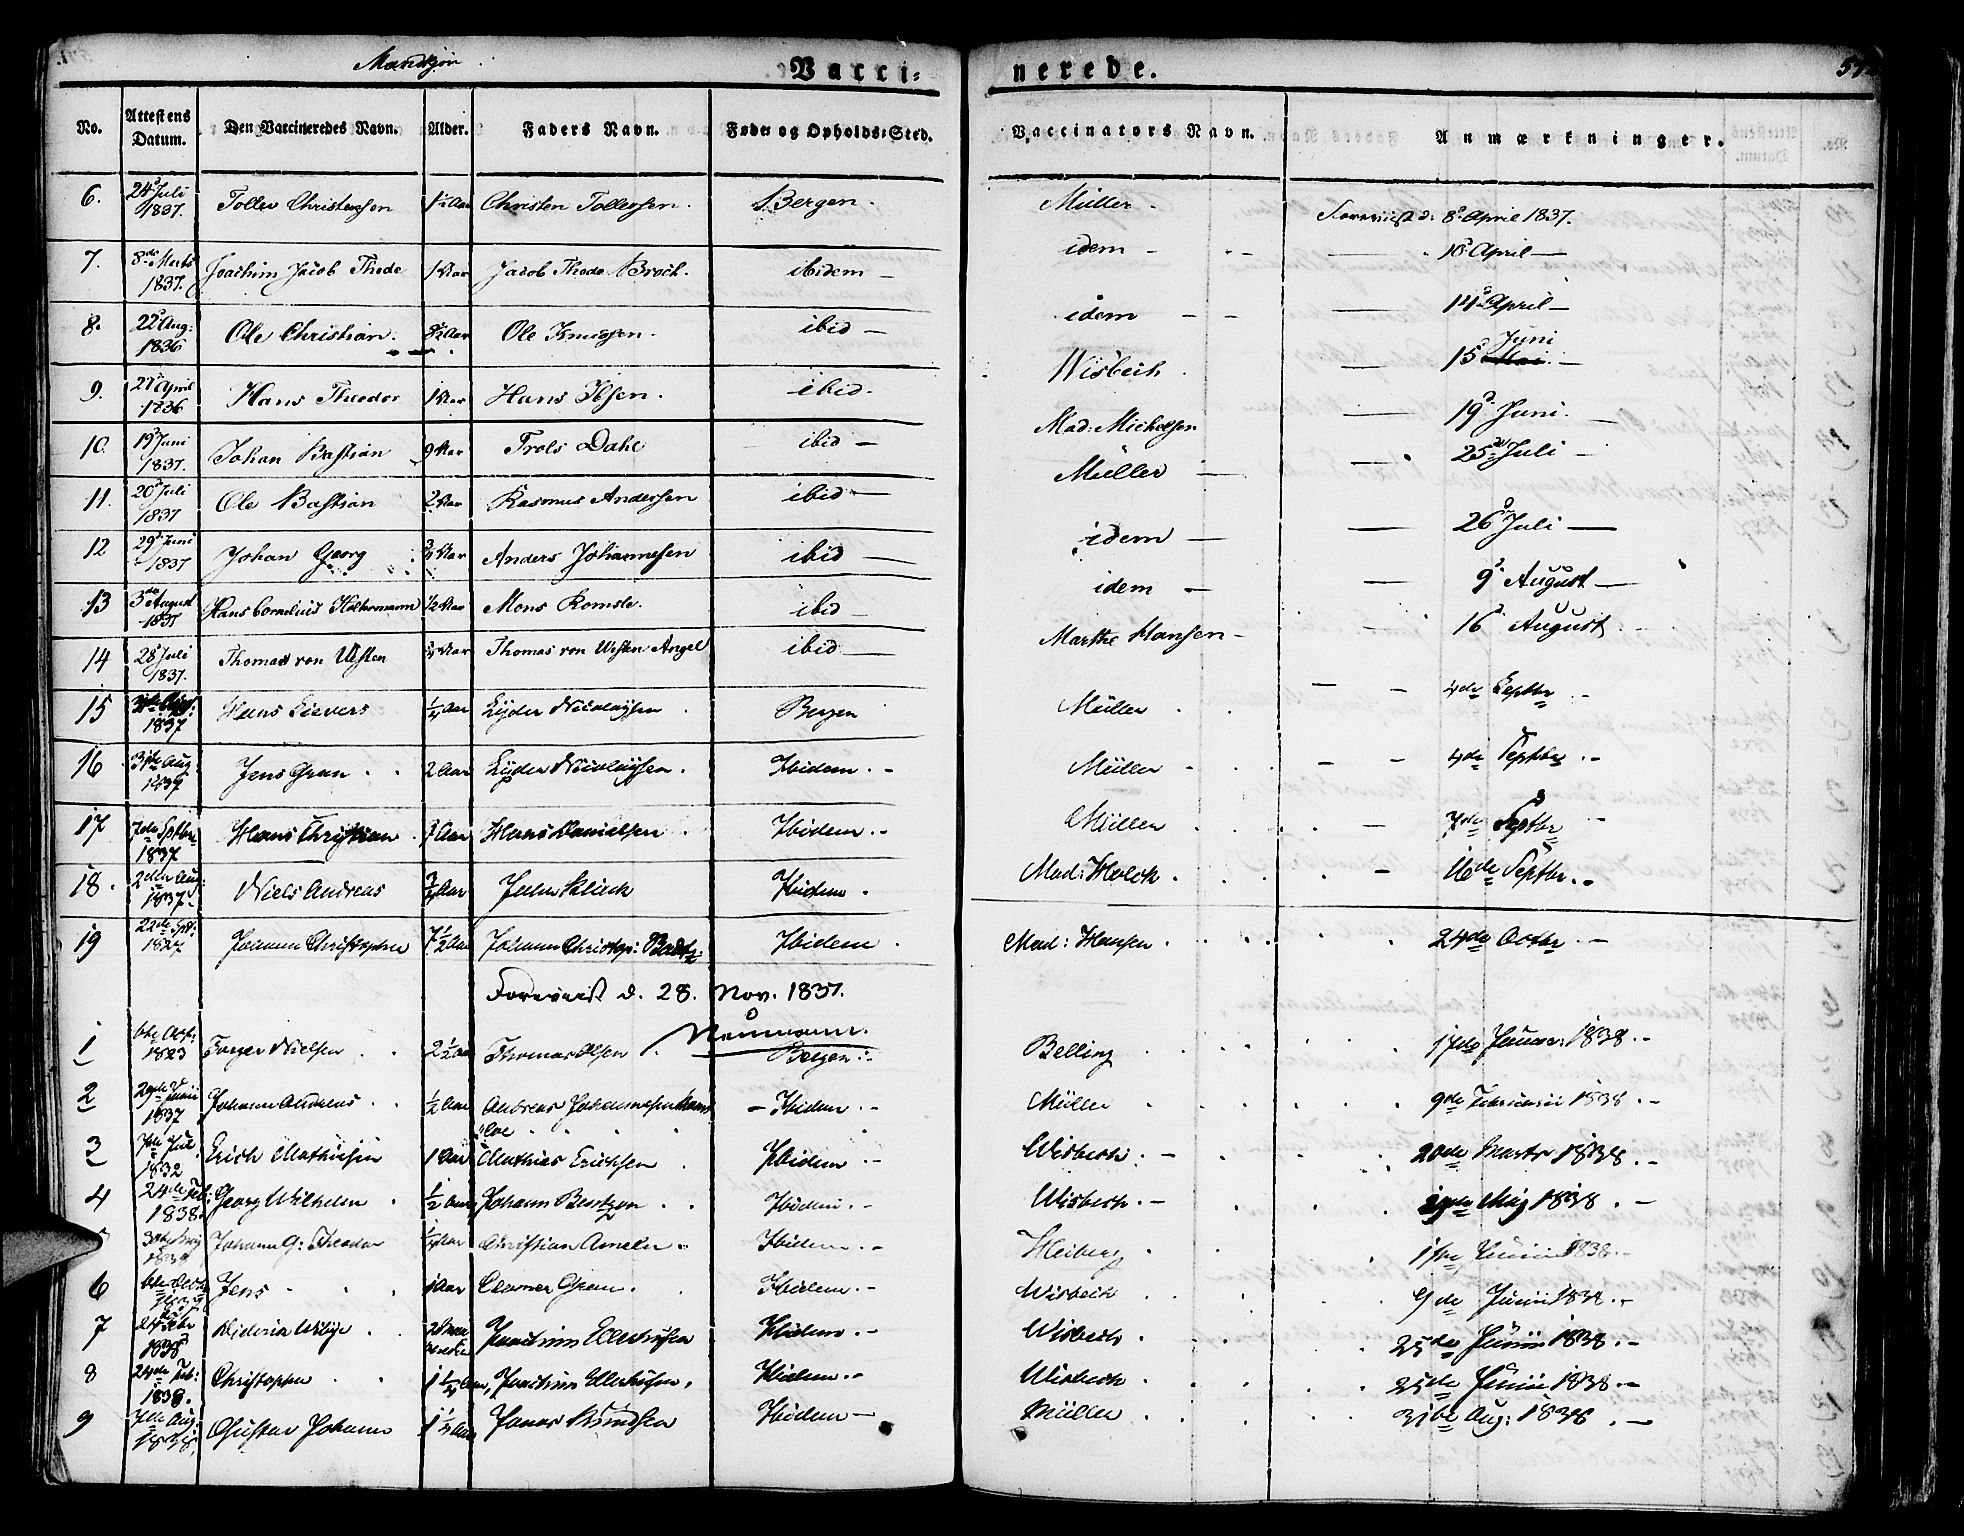 Mandkjøn.
Vacci= nerede. 57
No. Attestens Datum. Den Vaccineredes Navn. Alder. Faders Navn. Føde= og Opholds=Sted. Vaccinators Navn. Anmærkninger.
6. 24 Juli 1837. Tollev Christensen 1½ Aar Christen Tollevsen. Bergen. Müller. Foreviist d. 8 April 1837.
7. 8de Marts 1837. Joachim Jacob Thode 1 Aar Jacob Thode Broch. ibidem — idem — 18 April —
8. 22 Aug: 1836 Ole Christian. Aar Ole Knudsen. ibid — idem — — 14 April —
9. 27 April 1836 Hans Theodor 1 Aar Hans Ibsen. ibid. Wisbech. — 15 Juni —
10. 19 Juni 1837. Johan Bastian 9 Aar Trols Dahl ibid — Mad: Michelsen — 19 Juni. —
11. 20 Juli 1837 Ole Bastian 2 Aar Rasmus Andersen ibid — Müller — 25 Juli —
12 29 Juni 1837 Johan Georg Aar Anders Johannesen ibid — idem — 26 Juli —
13 3de August 1837 Hans Cornelius Holtermann ½ Aar Mons Romsle. ibid — idem — 9 August —
14 28 Juli 1837. Thomas von Westen Aar Thomas von Westen Angel ibid — Marthe Hansen — 16 August.
15 1837 Hans Sievers ¼ Aar Lyder Nicolaysen. Bergen Müller. — 4de Septbr. —
16 31te Aug: 1837 Jens Gran 2 Aar Lyder Nicolaysen. Ibidem. — Müller — 4de Septbr. —
17 7de Septbr 1837 Hans Christian Aar Hans Danielsen Ibidem. — Müller — 7de Septbr —
18. 2den Aug: 1837. Niels Andreas Aar John Ibidem. Mad: Holck. — 16de Septbr. —
19 22de Spt: 1827 Johann Christopher 7½ Aar Johann Christop: Ibidem. Mad: Hansen. 24de Octbr. —
Foreviist d. 28. Nov. 1837.
Neumann.
1 6te Oct: 1823 Torger Nielsen 2½ Aar Thomas Olsen. Bergen. Belling 17de Januar: 1838. —
2 29de Junii 1837 Johann Andreas ½ Aar Andreas Johannesen — Ibidem. — Müller 9de Februarii 1838. —
3 7de Jul. 1832 Erich Mathiesen 1 Aar Mathias Erichsen Ibidem. — Wisbech. — 20de Marts 1838. —
4 24de Feb: 1838. Georg Wilhelm ½ Aar Johann Berntzen Ibidem. — Wisbech. — 29de Maj 1838 —
Johann G: Theodor ¼ Aar Christian Ameln. Ibidem. — Heiberg 1ste Junii 1838. —
6 6te Octbr Jens 1 Aar Clamer Gran. Ibidem. — Wisbech 9de Junii 1838. —
7 24de Febr 1838 Diderich Wibye Joachim Ellerhusen Ibidem. — Wisbech. 25de Junii 1838. —
8 24de Feb: 1838. Christopher 1¼ Aar, Joachim Ellerhusen, Ibidem. — Wisbech. 25de Junii 1838. —
9 7de Aug: 1838, Gustav Johann 1½ Aar Jonas Knudsen Ibidem — Müller 31te Aug: 1838. —